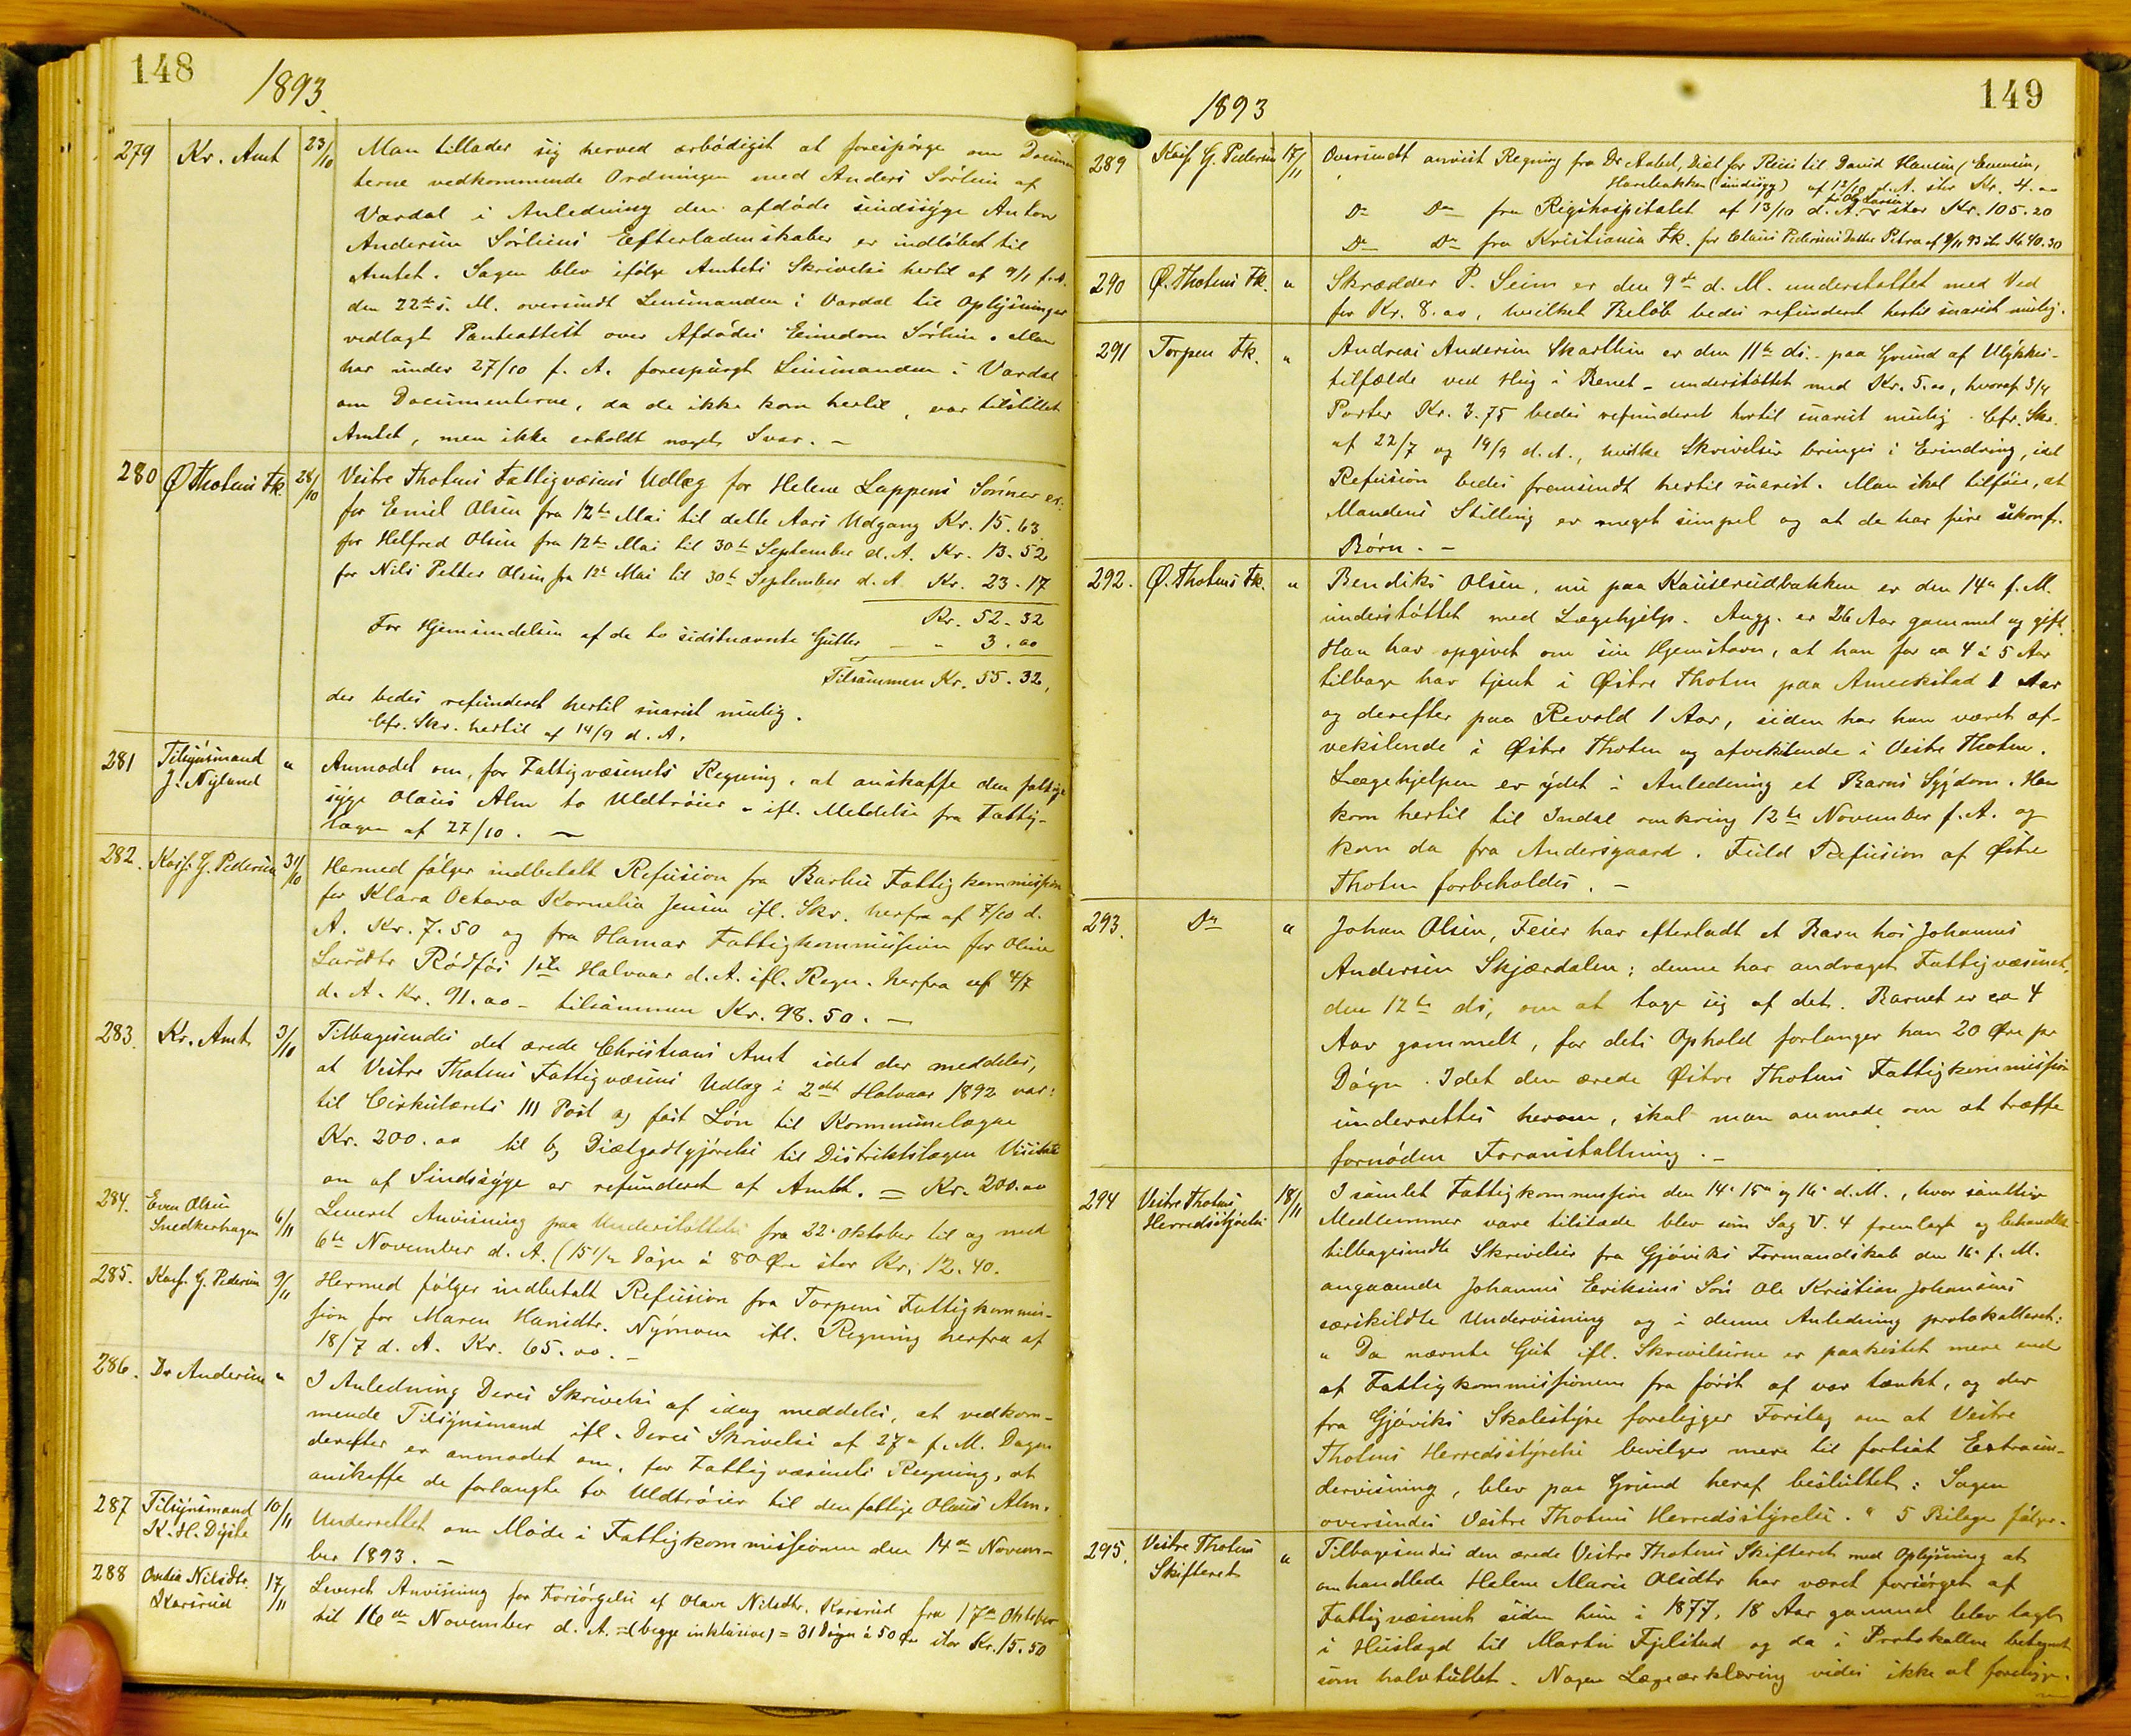 148
1893.
279 Kr. Amt 23/10 Man tillader sig herved ærbødigst at forespørge om Documen
terne vedkommende Ordningen med Anders Sørlien af
Vardal i Anledning den afdøde sindssyge Anton
Andersen Sørliens Efterladenskaber er indløbet til
Amtet. Sagen blev ifølge Amtets Skrivelse hertil af 9/1 f. A.
den 22de s. M. oversendt Lensmanden i Vardal til Oplysninger
vedlagt Panteattest over Afdødes Eiendom Sørlien. Man
har under 27/10 f. A. forespurgt Lensmanden i Vardal
om Documenterne, da de ikke kom hertil, var tilstillet
Amtet, men ikke erholdt noget Svar. –
280 Ø Thotens Fk. 28/10 Vestre Thotens Fattigvæsens Udlæg for Helene Lappens Sønner er:
for Emil Olsen fra 12te Mai til dette Aars Udgang Kr. 15.63
for Helfred Olsen fra 12te Mai til 30te September d. A. Kr. 13.52
for Nils Petter Olsen fra 12te Mai til 30te September d. A. Kr. 23.17
Kr. 52.32
For Hjemsendelsen af de to sidstnævnte Gutter – " 3.00
Tilsammen Kr. 55.32,
der bedes refunderet hertil snarest mulig.
Cfr. Skr. hertil af 14/9 d. A.
281 Tilsynsmand J. Nylund " Anmodet om, for Fattigvæsenets Regning, at anskaffe den fattige
syge Olaus Alm to Uldtrøier – ifl. Meddelelse fra Fattig-
lægen af 27/10. –
282. Kasf. G. Pedersen 31/10 Hermed følger indbetalt Refusion fra Barbu Fattigkommission
for Klara Octava Kornelia Jensen ifl. Skr. herfra af 7/10 d.
A. Kr. 7.50 og fra Hamar Fattigkommission for Oline
Larsdtr Rødfos 1ste Halvaar d. A. ifl. Regn. herfra af 4/7
d. A. Kr. 91.00 – tilsammen Kr. 98.50. –
283. Kr. Amt 3/10 Tilbagesendes det ærede Christians Amt idet der meddeles,
at Vestre Thotens Fattigvæsens Udlæg i 2det Halvaar 1892 var:
til Cirkulærets III Post a) fast Løn til Kommunelægen
Kr. 200.00 til b) Diætgodtgjørelse til Distriktslægen
on af Sindssyge er refunderet af Amtet. = Kr. 200.00
284. Even Olsen Snedkerhagen 6/11 Leveret Anvisning paa Understøttelse fra 22. Oktober til og med
6te November d. A. (15 1/2 Døgn à 80 Øre stor Kr. 12.40.
285. Kasf. G. Pedersen 9/11 Hermed følger indbetalt Refusion fra Torpens Fattigkommis-
sion for Maren Hansdtr. Nymoen ifl. Regning herfra af
18/7 d. A. Kr. 65.00. –
286. Dr Andersen " I Anledning Deres Skrivelse af idag meddeles, at vedkom-
mende Tilsynsmand ifl. Deres Skrivelse af 27de f. M. Dagen
derefter er anmodet om, for Fattigvæsenets Regning, at
anskaffe de forlangte to Uldtrøier til den fattige Olaus Alm.
287 Tilsynsmand K. H. Dyste 10/11 Underrettet om Møde i Fattigkommissionen den 14de Novem-
ber 1893. –
288 Nilsdtr. Karsrud 17/11 Leveret Anvisning for Forsørgelse af Olave Nilsdtr. Karsrud fra 17de Oktober
til 16de November d. A. = (begge inklusive) = 31 Døgn à 50 Øre stor Kr. 15.50
149
1893
289 Kasf G. Pedersen 17/11 Oversendt anvist Regning fra Dr Diæt for Reise til David Hansen (Evensen,
(sindssyg) af 12/10 d. A. stor Kr. 4.00
Do Do fra Rigshospitalet af 13/10 d. A. for Ole Larsen stor Kr. 105.20
Do Do fra Kristiania Fk. for Claus Pedersens Datter Petra af 9/11 93 stor Kr 40.30
290 Ø. Thotens Fk. " Skrædder P. Seim er den 9de d. M. understøttet med Ved
for Kr. 8.00, hvilket Beløb bedes refunderet hertil snarest mulig.
291 Torpen Fk. " Andreas Andersen Skartlien er den 11te ds. paa Grund af Ulykkes-
tilfælde ved Hug i Benet – understøttet med Kr. 5.00, hvoraf 3/4
Parter Kr. 3.75 bedes refunderet hertil snarest mulig. Cfr. Skr.
af 22/7 og 14/9 d. A., hvilke Skrivelser bringes i Erindring, idet
Refusion bedes fremsendt hertil snarest. Man skal tilføie, at
Mandens Stilling er meget simpel og at de har fire ukonf.
Børn. –
292. Ø. Thotens Fk. " Bendiks Olsen, nu paa Kauserudbakken er den 14de f. M.
understøttet med Lægehjælp. Angj. er 26 Aar gammel og gift.
Han har opgivet om sin Hjemstavn, at han for ca 4 à 5 Aar
tilbage har tjent i Østre Thoten paa Ameekstad 1 Aar
og derefter paa Revold 1 Aar, siden har han været af-
vekslende i Østre Thoten og afvekslende i Vestre Thoten.
Lægehjelpen er ydet i Anledning et Barns Sygdom. Han
kom hertil til Indal omkring 12te November f. A. og
kom da fra Andersgaard. Fuld Refusion af Østre
Thoten forbeholdes. –
293. Do " Johan Olsen, Feier har efterladt et Barn hos Johannes
Andersen Skjærdalen; denne har andraget Fattigvæsenet,
den 12te ds, om at tage sig af det. Barnet er ca 4
Aar gammelt, for dets Ophold forlanger han 20 Øre pr
Døgn. Idet den ærede Østre Thotens Fattigkommission
underrettes herom, skal man anmode om at træffe
fornøden Foranstaltning. –
294 Vestre Thotens Herredsstyrelse 18/11 I samlet Fattigkommission den 14de 15de og 16de d. M., hvor samtlige
Medlemmer vare tilstæde blev som Sag V. 4 fremlagt og behandlet
tilbagesendte Skrivelser fra Gjøviks Formandskab den 16de f. M.
angaaende Johannes Eriksens Søn Ole Kristian Johansens
særskildte Undervisning og i denne Anledning protokolleret:
" Da nævnte Gut ifl. Skrivelserne er paakostet mere end
af Fattigkommissionen fra først af var tænkt, og der
fra Gjøviks Skolestyre foreligger Forslag om at Vestre
Thotens Herredsstyrelse bevilger mere til fortsat Extraun-
dervisning, blev paa Grund heraf besluttet: Sagen
oversendes Vestre Thotens Herredsstyrelse. " 5 Bilage følger.
295. Vestre Thotens Skifteret " Tilbagesendes den ærede Vestre Thotens Skifteret med Oplysning at
omhandlede Helene Marie Olsdtr har været forsørget af
Fattigvæsenet siden hun i 1877, 18 Aar gammel blev lagt
i Huslægd til Martin Fjelstad og da i Protokollen betegnet
som halvtullet. Nogen Lægeærklæring vides ikke at foreligge.